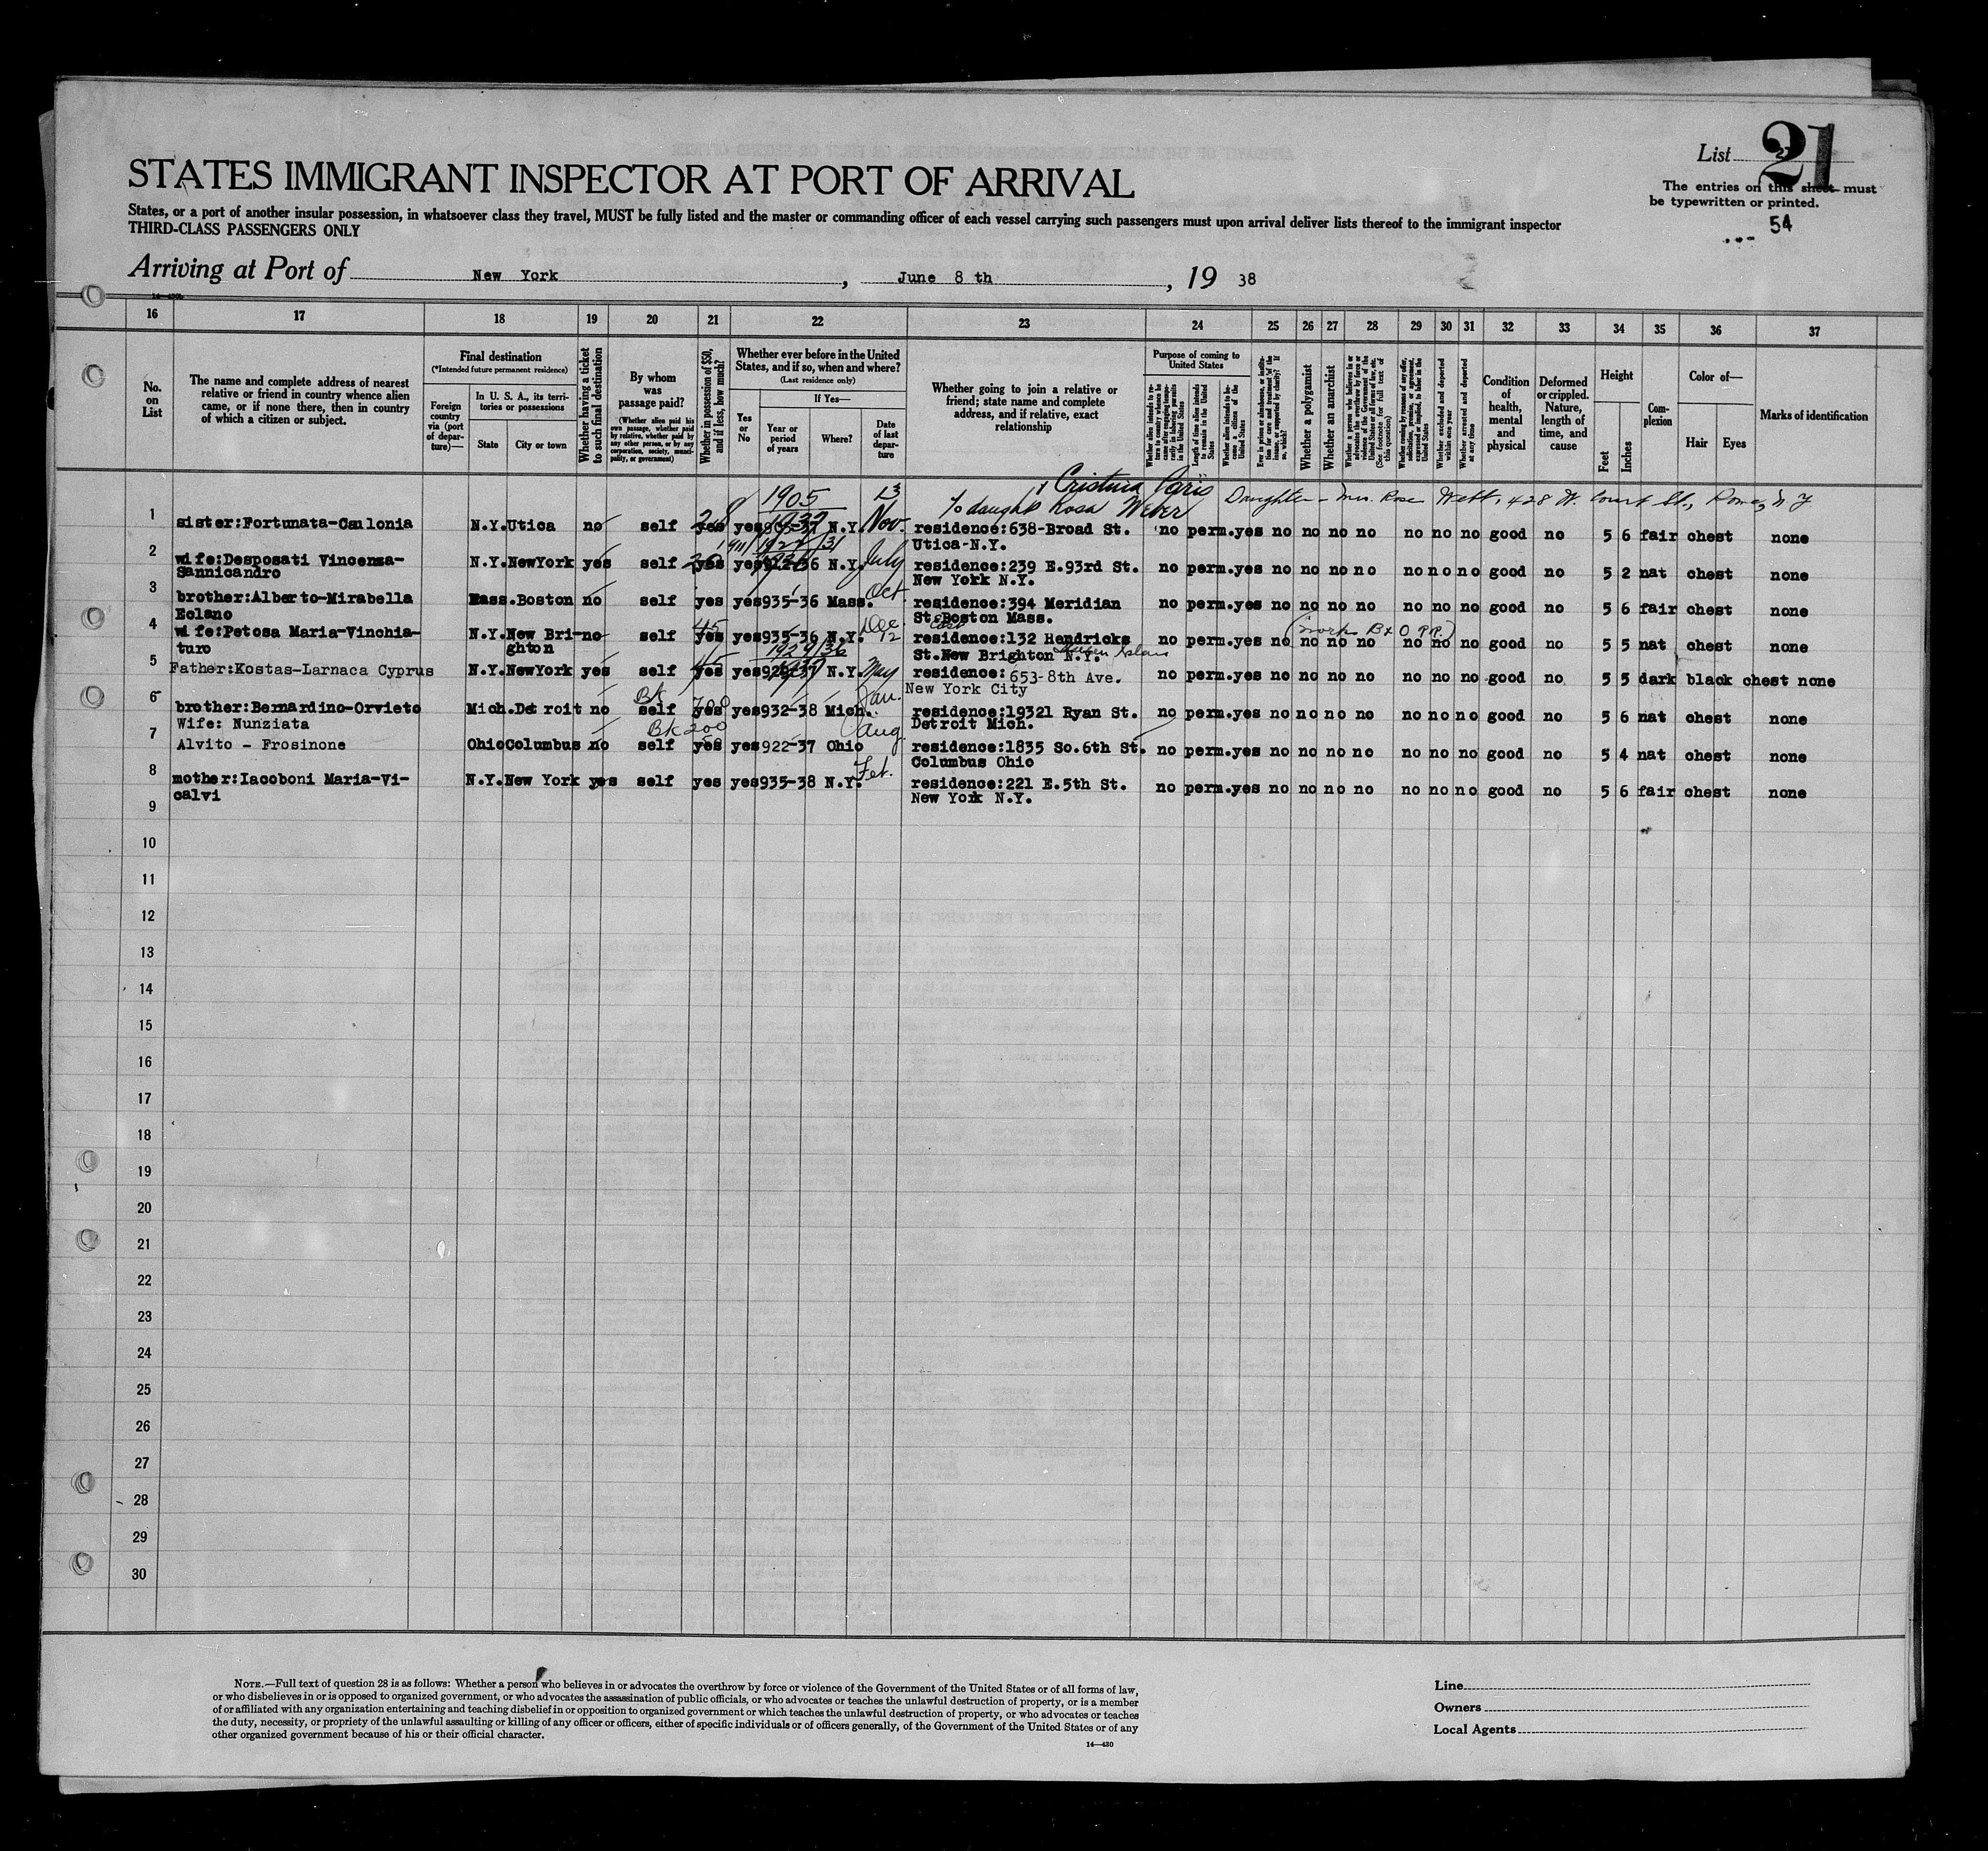 List 21
21
STATES IMMIGRANT INSPECTOR AT PORT OF ARRIVAL
The entries on this sheet must
be typewritten or printed.
States, or a port of another insular possession, in whatsoever class they travel, MUST be fully listed and the master or commanding officer of each vessel carrying such passengers must upon arrival deliver lists thereof to the immigrant inspector
THIRD-CLASS PASSENGERS ONLY
54
Arriving at Port of New York, June 8 th, 19 38
16 17 18 19 20 21 22 23 24 25 26 27 28 29 30 31 32 33 34 35 36 37
No. on List
The name and complete address of nearest relative or friend in country whence alien came, or if none there, then in country of which a citizen or subject.
Final destination
(*Intended future permanent residence)
Foreign country via (port of departure)—
In U. S. A., its territories or possessions
State
City or town
Whether having a ticket to such final destination
By whom was passage paid?
(Whether alien paid his own passage, whether paid by relative, whether paid by any other person, or by any corporation, society, municipality, or government)
Whether in possession of $50, and if less, how much?
Whether ever before in the United States, and if so, when and where?
(Last residence only)
Yes or No
If Yes—
Year or period of years
Where?
Date of last departure
Whether going to join a relative or friend; state name and complete address, and if relative, exact relationship
Purpose of coming to United States
Length of time alien intends to remain in the United States
Whether a polygamist
Whether an anarchist
Whether excluded and deported within one year
Whether arrested and deported at any time
Condition of health, mental and physical
Deformed or crippled. Nature, length of time, and cause
Height
Feet
Inches
Complexion
Color of—
Hair
Eyes
Marks of identification
1905 Cristina Paris
To daught Rosa Weber Daughter - Mrs. Rose Webb, 428 W. Court St., Rome, N.Y
1 sister:Fortunata-Caulonia N.Y. Utica no self yes yes 905-37 N.Y. Nov. residence:638-Broad St. no perm. yes no no no no no no no good no 5 6 fair chest none
Utica-N.Y.
1911/1924/31
2 wife:Desposati Vincenza- N.Y. NewYork yes self yes yes 922-36 N.Y. July residence:239 E.93rd St. no perm. yes no no no no no no no good no 5 2 nat chest none
Sannicandro New York N.Y.
3 brother:Alberto-Mirabella Mass. Boston no self yes yes 935-36 Mass. Oct. residence:394 Meridian no perm. yes no no no no no no no good no 5 6 fair chest none
Eclano St. East Boston Mass.
(works B & O RR.)
4 wife:Petosa Maria-Vinchia- N.Y. New Bri- no self 45 yes yes 935-36 N.Y. Dec. 12 residence:132 Hendricks no perm. yes no no no no no no no good no 5 5 nat chest none
turo ghton 1929/36 St.New Brighton N.Y. Staten Island
5 Father:Kostas-Larnaca Cyprus N.Y. NewYork yes self 45 yes yes 929-37 N.Y. May residence: 653-8th Ave. no perm. yes no no no no no no no good no 5 5 dark black chest none
New York City
6 brother:Bernardino-Orvieto Mich. Detroit no BK 700 self yes yes 932-38 Mich. Jan. residence:19321 Ryan St. no perm. yes no no no no no no no good no 5 6 nat chest none
Detroit Mich.
Wife: Nunziata
7 Alvito - Frosinone Ohio Columbus no BK 200 self yes 50 yes 922-37 Ohio Aug. residence:1835 So.6th St. no perm. yes no no no no no no no good no 5 4 nat chest none
Columbus Ohio
8 mother:Iacoboni Maria-Vi- N.Y. New York yes self yes yes 935-38 N.Y. Feb. residence:221 E.5th St. no perm. yes no no no no no no no good no 5 6 fair chest none
calvi New York N.Y.
9
10
11
12
13
14
15
16
17
18
19
20
21
22
23
24
25
26
27
28
29
30
NOTE.—Full text of question 28 is as follows: Whether a person who believes in or advocates the overthrow by force or violence of the Government of the United States or of all forms of law,
or who disbelieves in or is opposed to organized government, or who advocates the assassination of public officials, or who advocates or teaches the unlawful destruction of property, or is a member
of or affiliated with any organization entertaining and teaching disbelief in or opposition to organized government or which teaches the unlawful destruction of property, or who advocates or teaches
the duty, necessity, or propriety of the unlawful assaulting or killing of any officer or officers, either of specific individuals or of officers generally, of the Government of the United States or of any
other organized government because of his or their official character.
14—430
Line
Owners
Local Agents